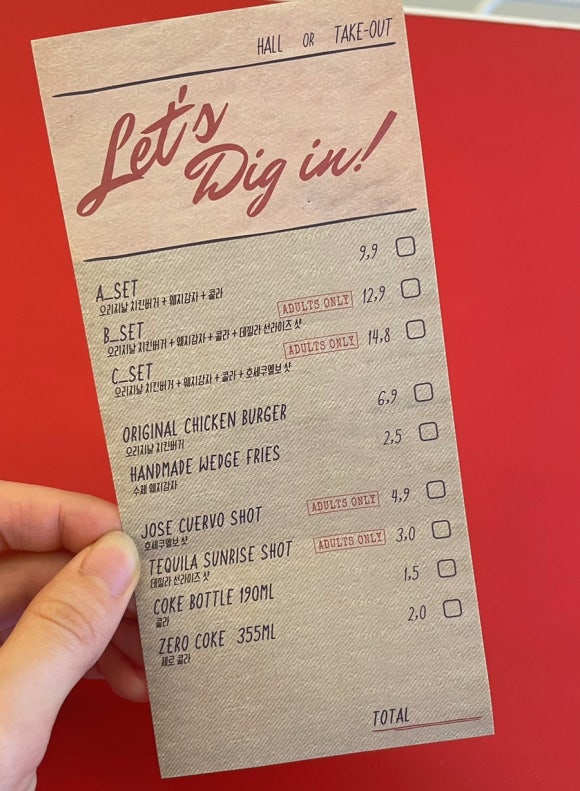 HALL OR TAKE-OUT
Let's
Dig in!
A_SET 9,9
오리지날 치킨버거 + 웨지감자 + 콜라
B_SET ADULTS ONLY 12,9
오리지날 치킨버거 + 웨지감자 + 콜라 + 데킬라 선라이즈 샷
C_SET ADULTS ONLY 14,8
오리지날 치킨버거 + 웨지감자 + 콜라 + 호세쿠엘보 샷
ORIGINAL CHICKEN BURGER 6,9
오리지날 치킨버거
HANDMADE WEDGE FRIES 2,5
수제 웨지감자
JOSE CUERVO SHOT ADULTS ONLY 4,9
호세쿠엘보 샷
TEQUILA SUNRISE SHOT ADULTS ONLY 3,0
데킬라 선라이즈 샷
COKE BOTTLE 190ML 1,5
콜라
ZERO COKE 355ML 2,0
제로 콜라
TOTAL